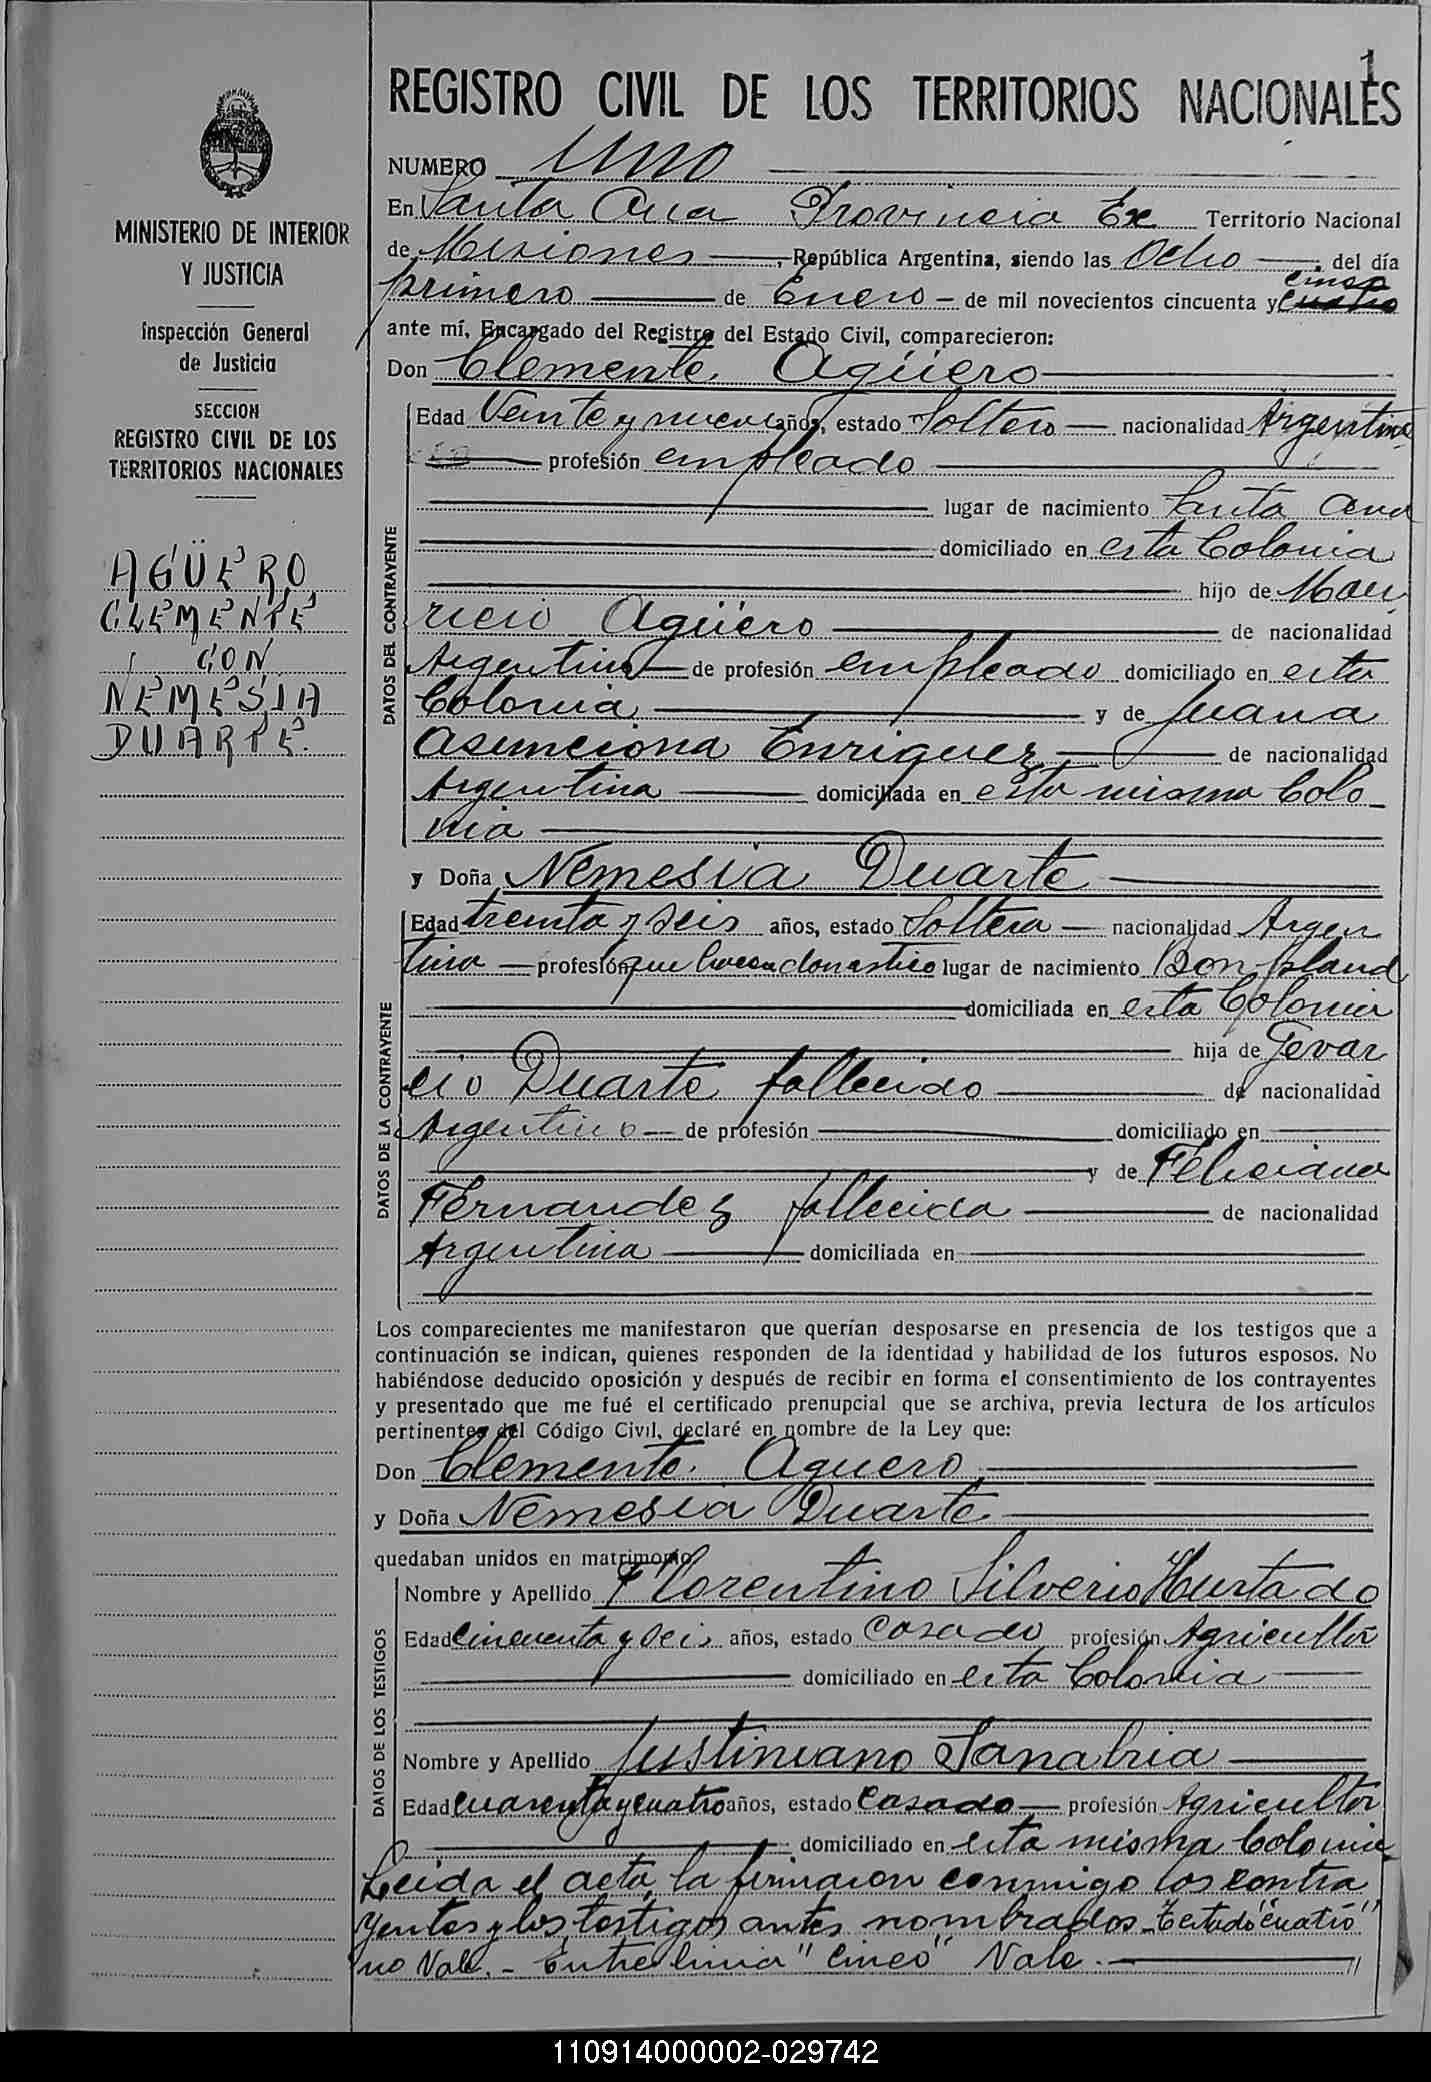 1
REGISTRO CIVIL DE LOS TERRITORIOS NACIONALES
MINISTERIO DE INTERIOR
Y JUSTICIA
Inspección General
de Justicia
SECCION
REGISTRO CIVIL DE LOS
TERRITORIOS NACIONALES
AGÜERO
CLEMENTE
CON
NEMESIA
DUARTE.
NUMERO Uno
En Santa Ana Provincia Ex Territorio Nacional
de Misiones, República Argentina, siendo las Ocho, del día
cinco
primero de Enero de mil novecientos cincuenta y cuatro
ante mí, Encargado del Registro del Estado Civil, comparecieron:
Don Clemente Agüero
DATOS DEL CONTRAYENTE
Edad Veinte y nueve años, estado Soltero nacionalidad Argentina
profesión empleado
lugar de nacimiento Santa Ana
domiciliado en esta Colonia
hijo de Mau
ricio Agüero de nacionalidad
Argentino de profesión empleado domiciliado en esta
Colonia y de Juana
Asunciona Enriquez de nacionalidad
Argentina domiciliada en esta misma Colo
nia
y Doña Nemesia Duarte
DATOS DE LA CONTRAYENTE
Edad treinta y seis años, estado Soltera nacionalidad Argen
tina profesión que lugar de nacimiento Bonpland
domiciliada en esta Colonia
hija de Gevar
cio Duarte fallecido de nacionalidad
Argentino de profesión domiciliado en
y de Feliciana
Fernandez fallecida de nacionalidad
Argentina domiciliada en
Los comparecientes me manifestaron que querían desposarse en presencia de los testigos que a
continuación se indican, quienes responden de la identidad y habilidad de los futuros esposos. No
habiéndose deducido oposición y después de recibir en forma el consentimiento de los contrayentes
y presentado que me fué el certificado prenupcial que se archiva, previa lectura de los artículos
pertinentes del Código Civil, declaré en nombre de la Ley que:
Don Clemente Aguero
y Doña Nemesia Duarte
quedaban unidos en matrimonio
DATOS DE LOS TESTIGOS
Nombre y Apellido Florentino Silverio Hurtado
Edad cincuenta y seis años, estado Casado profesión Agricultor
domiciliado en esta Colonia
Nombre y Apellido Justiniano Sanabria
Edad cuarenta y cuatro años, estado Casado profesión Agricultor
domiciliado en esta misma Colonia
Leida el acta, la firmaron conmigo los contra
yentes y los testigos antes nombrados - Testado "cuatro"
no Vale. - Entre linia "cinco" Vale.
110914000002-029742